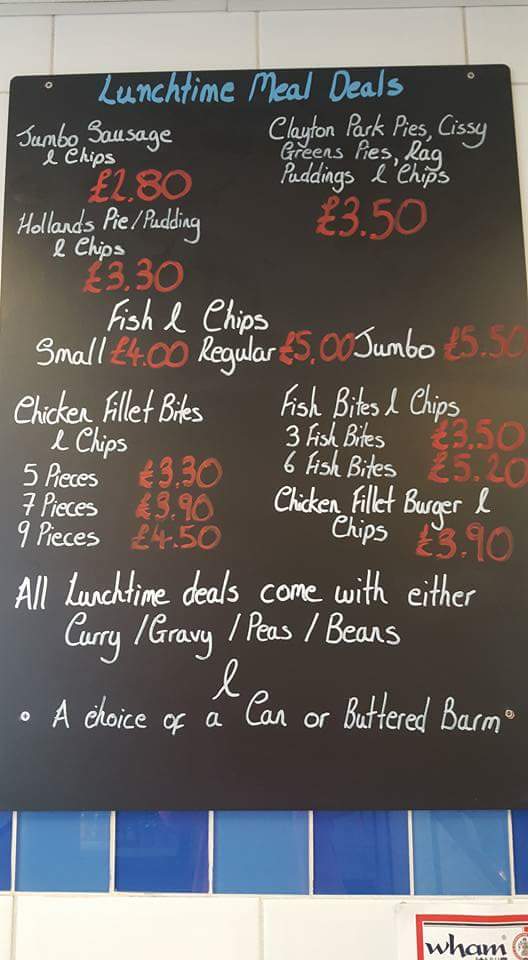 Lunchtime Meal Deals
Jumbo Sausage
& Chips
£2.80
Hollands Pie/Pudding
& Chips
£3.30
Clayton Park Pies, Cissy
Greens Pies, Rag
Puddings & Chips
£3.50
Fish & Chips
Small £4.00 Regular £5.00 Jumbo £5.50
Chicken Fillet Bites
& Chips
5 Pieces £3.30
7 Pieces £3.90
9 Pieces £4.50
Fish Bites & Chips
3 Fish Bites £3.50
6 Fish Bites £5.20
Chicken Fillet Burger &
Chips £3.90
All Lunchtime deals come with either
Curry / Gravy / Peas / Beans
&
A choice of a Can or Buttered Barm
wham